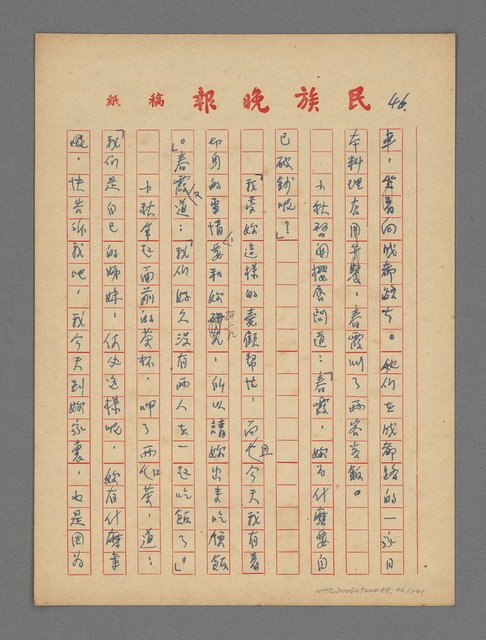 民族晚報稿紙
46.
車,沿着向成都路去。她们在成都路的一家日
本料理店用午餐,春霞叫了两客蓋飯。
小秋啓開櫻唇問道:「春霞,妳为什麽要自
己破鈔呢?」
「我受妳這樣的意顧幫忙,而且今天我有着
切身的事情要和妳研究,所以請妳出來吃頓飯
。」春霞又道:「我们好久没有两人在一起吃飯了。」
小秋拿起面前的茶杯,呷了两口茶,道:
「我们是自己的姊妹,何必这樣呢,妳有什麽事
呢,快告訴我吧,我今天到妳家裏,也是因为
NMTL20060900088, 46/241